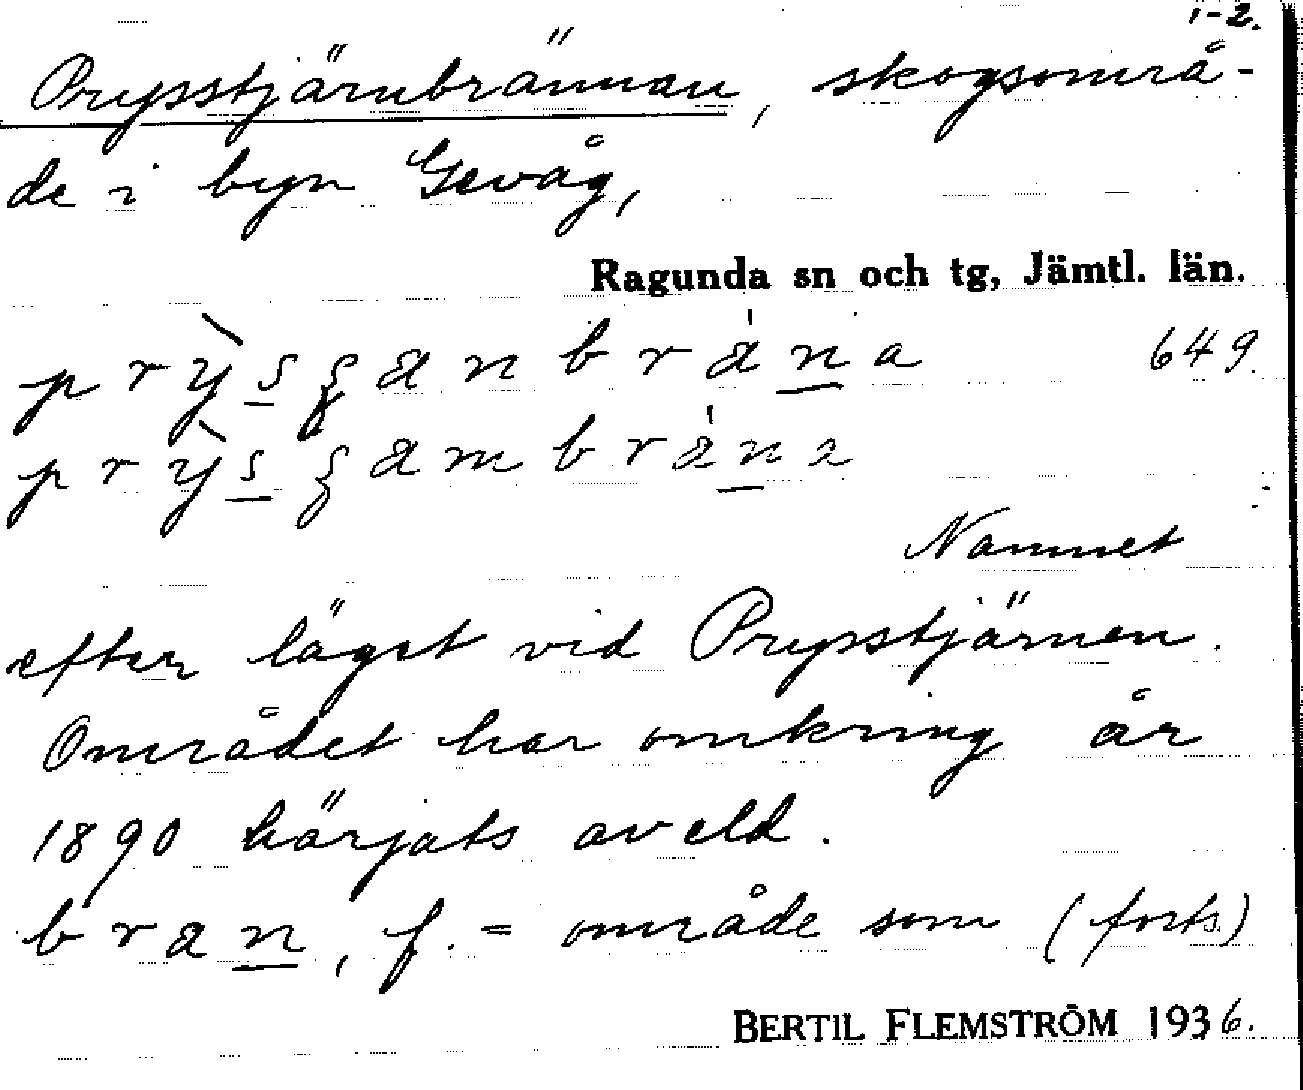 1-2.
Prysstjärnbrännan, skogsområ-
de i byn Gevåg,
Ragunda sn och tg, Jämtl. län.
649.
Namnet
efter läget vid Prysstjärnen.
Området har omkring år
1890 härjats av eld.
bran, f. = område som (forts.)
BERTIL FLEMSTRÖM 1936.